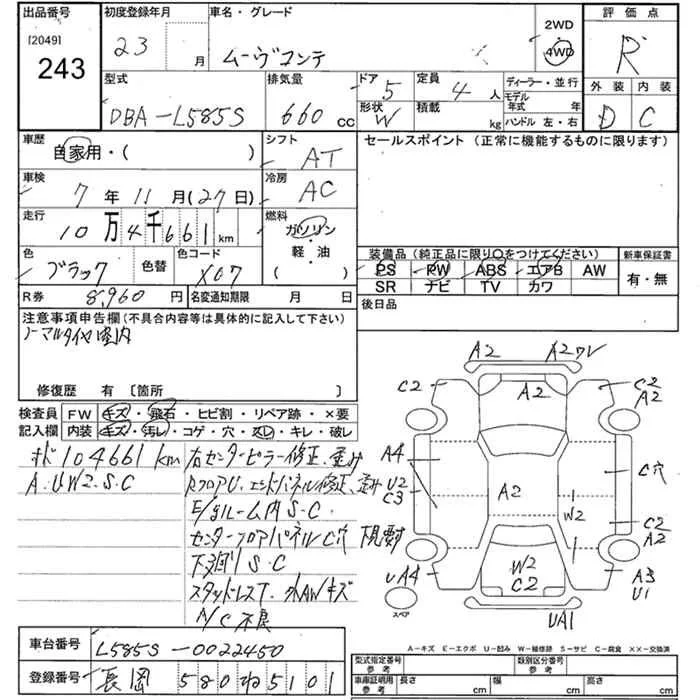 出品番号 [2049] 243
初度登録年月 23 月
車名・グレード ムーヴコンテ
2WD 4WD
評価点 R
外装 D 内装 C
型式 DBA-L585S
排気量 660 cc
ドア 5 形状 W
定員 4 人 積載 kg
ディーラー・並行
モデル年式 年
ハンドル 左・右
車歴 自家用・( )
シフト AT
車検 7年11月(27日)
冷房 AC
走行 10万4千661km
燃料 ガソリン・軽油 ( )
色 ブラック 色替 色コード X07
R券 8,960円 名変通知期限 月 日
セールスポイント(正常に機能するものに限ります)
装備品(純正品に限り○をつけてください) 新車保証書
PS PW ABS エアB AW 有・無
SR ナビ TV カワ
後日品
注意事項申告欄(不具合内容等は具体的に記入して下さい)
ノーマルタイヤ室内
修復歴 有 〔箇所 〕
検査員 FW キズ・飛石・ヒビ割・リペア跡・×要
記入欄 内装 キズ・汚レ・コゲ・穴・スレ・キレ・破レ
オド104661km
A.UW2.S.C
右センターピラー修正、歪み
RフロアU、エンドパネル修正、歪み
E/gルーム内S.C
センターフロアパネルC穴 下見要す
下廻りS.C
スタッドレスT.外AWキズ
A/C不良
A2 A2ワレ
C2 A2 C2 A2
A4 C穴
U2 C3 A2 W2 C2 A2
UA4 W2 C2 A3 U1
スペア UA1
A-キズ E-エクボ U-凹み W-補修跡 S-サビ C-腐食 ××-交換済
車台番号 L585S-0022450
登録番号 長岡 580 ね 5101
型式指定番号 参考 類別区分番号 参考
車庫証明用 参考 長さ cm 幅 cm 高さ cm